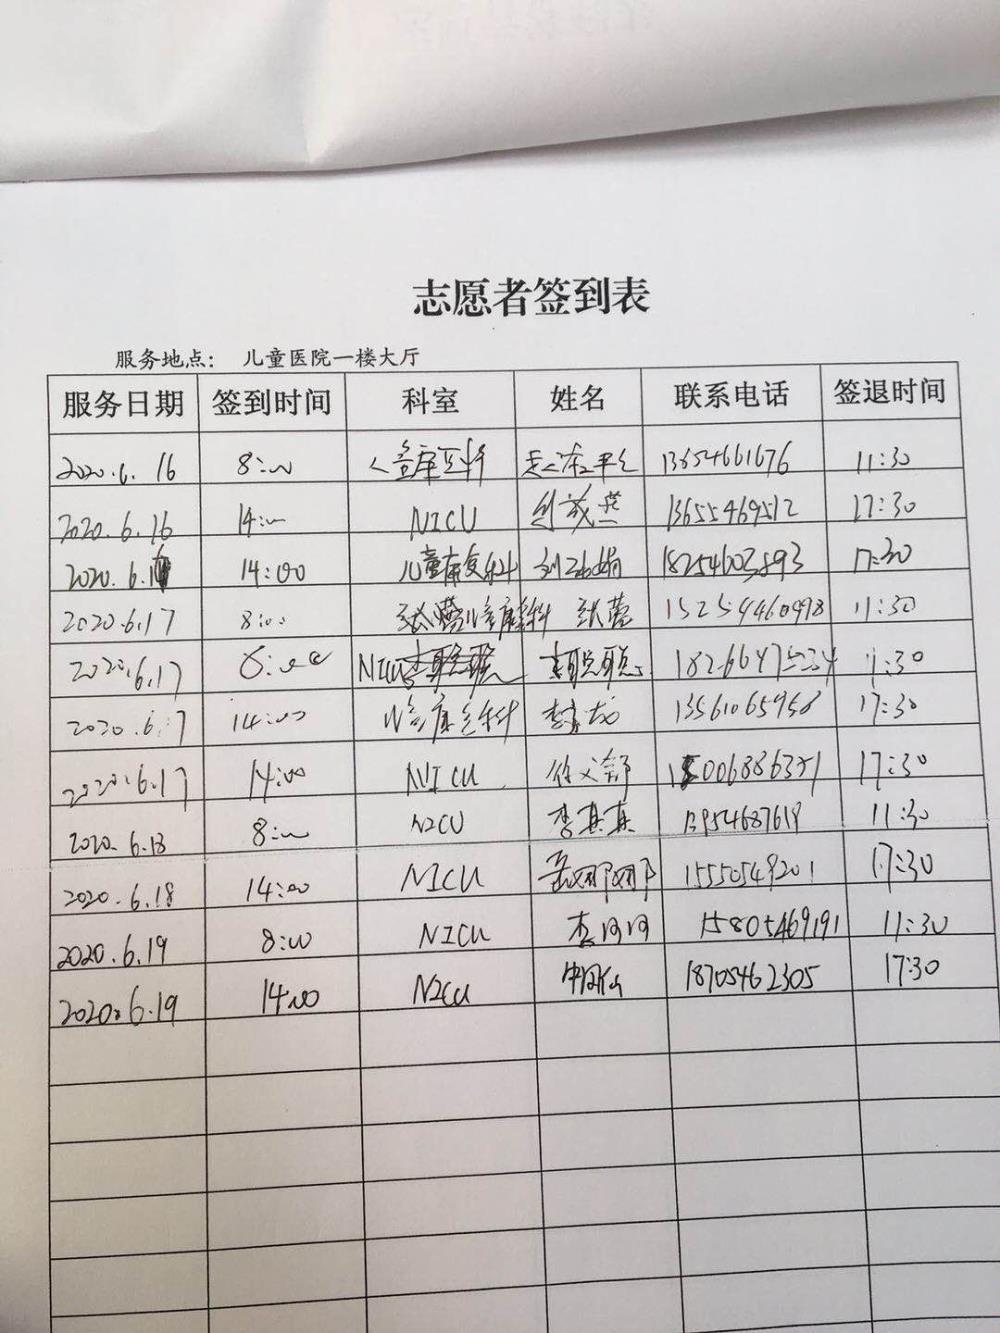 志愿者签到表
服务地点： 儿童医院一楼大厅
服务日期 签到时间 科室 姓名 联系电话 签退时间
2020.6.16 8:00 13654661676 11:30
2020.6.16 14:00 NICU 13655469512 17:30
2020.6.16 14:00 儿童康复科 18254603893 17:30
2020.6.17 8:00 张蕾 15254460998 11:30
2020.6.17 8:00 NICU 李聪聪 18266475234 11:30
2020.6.17 14:00 儿童康复科 13561065958 17:30
2020.6.17 14:00 NICU 17:30
2020.6.18 8:00 NICU 李真真 11:30
2020.6.18 14:00 NICU 岳娜娜 15550549201 17:30
2020.6.19 8:00 NICU 李珂珂 15805469191 11:30
2020.6.19 14:00 NICU 18705462305 17:30